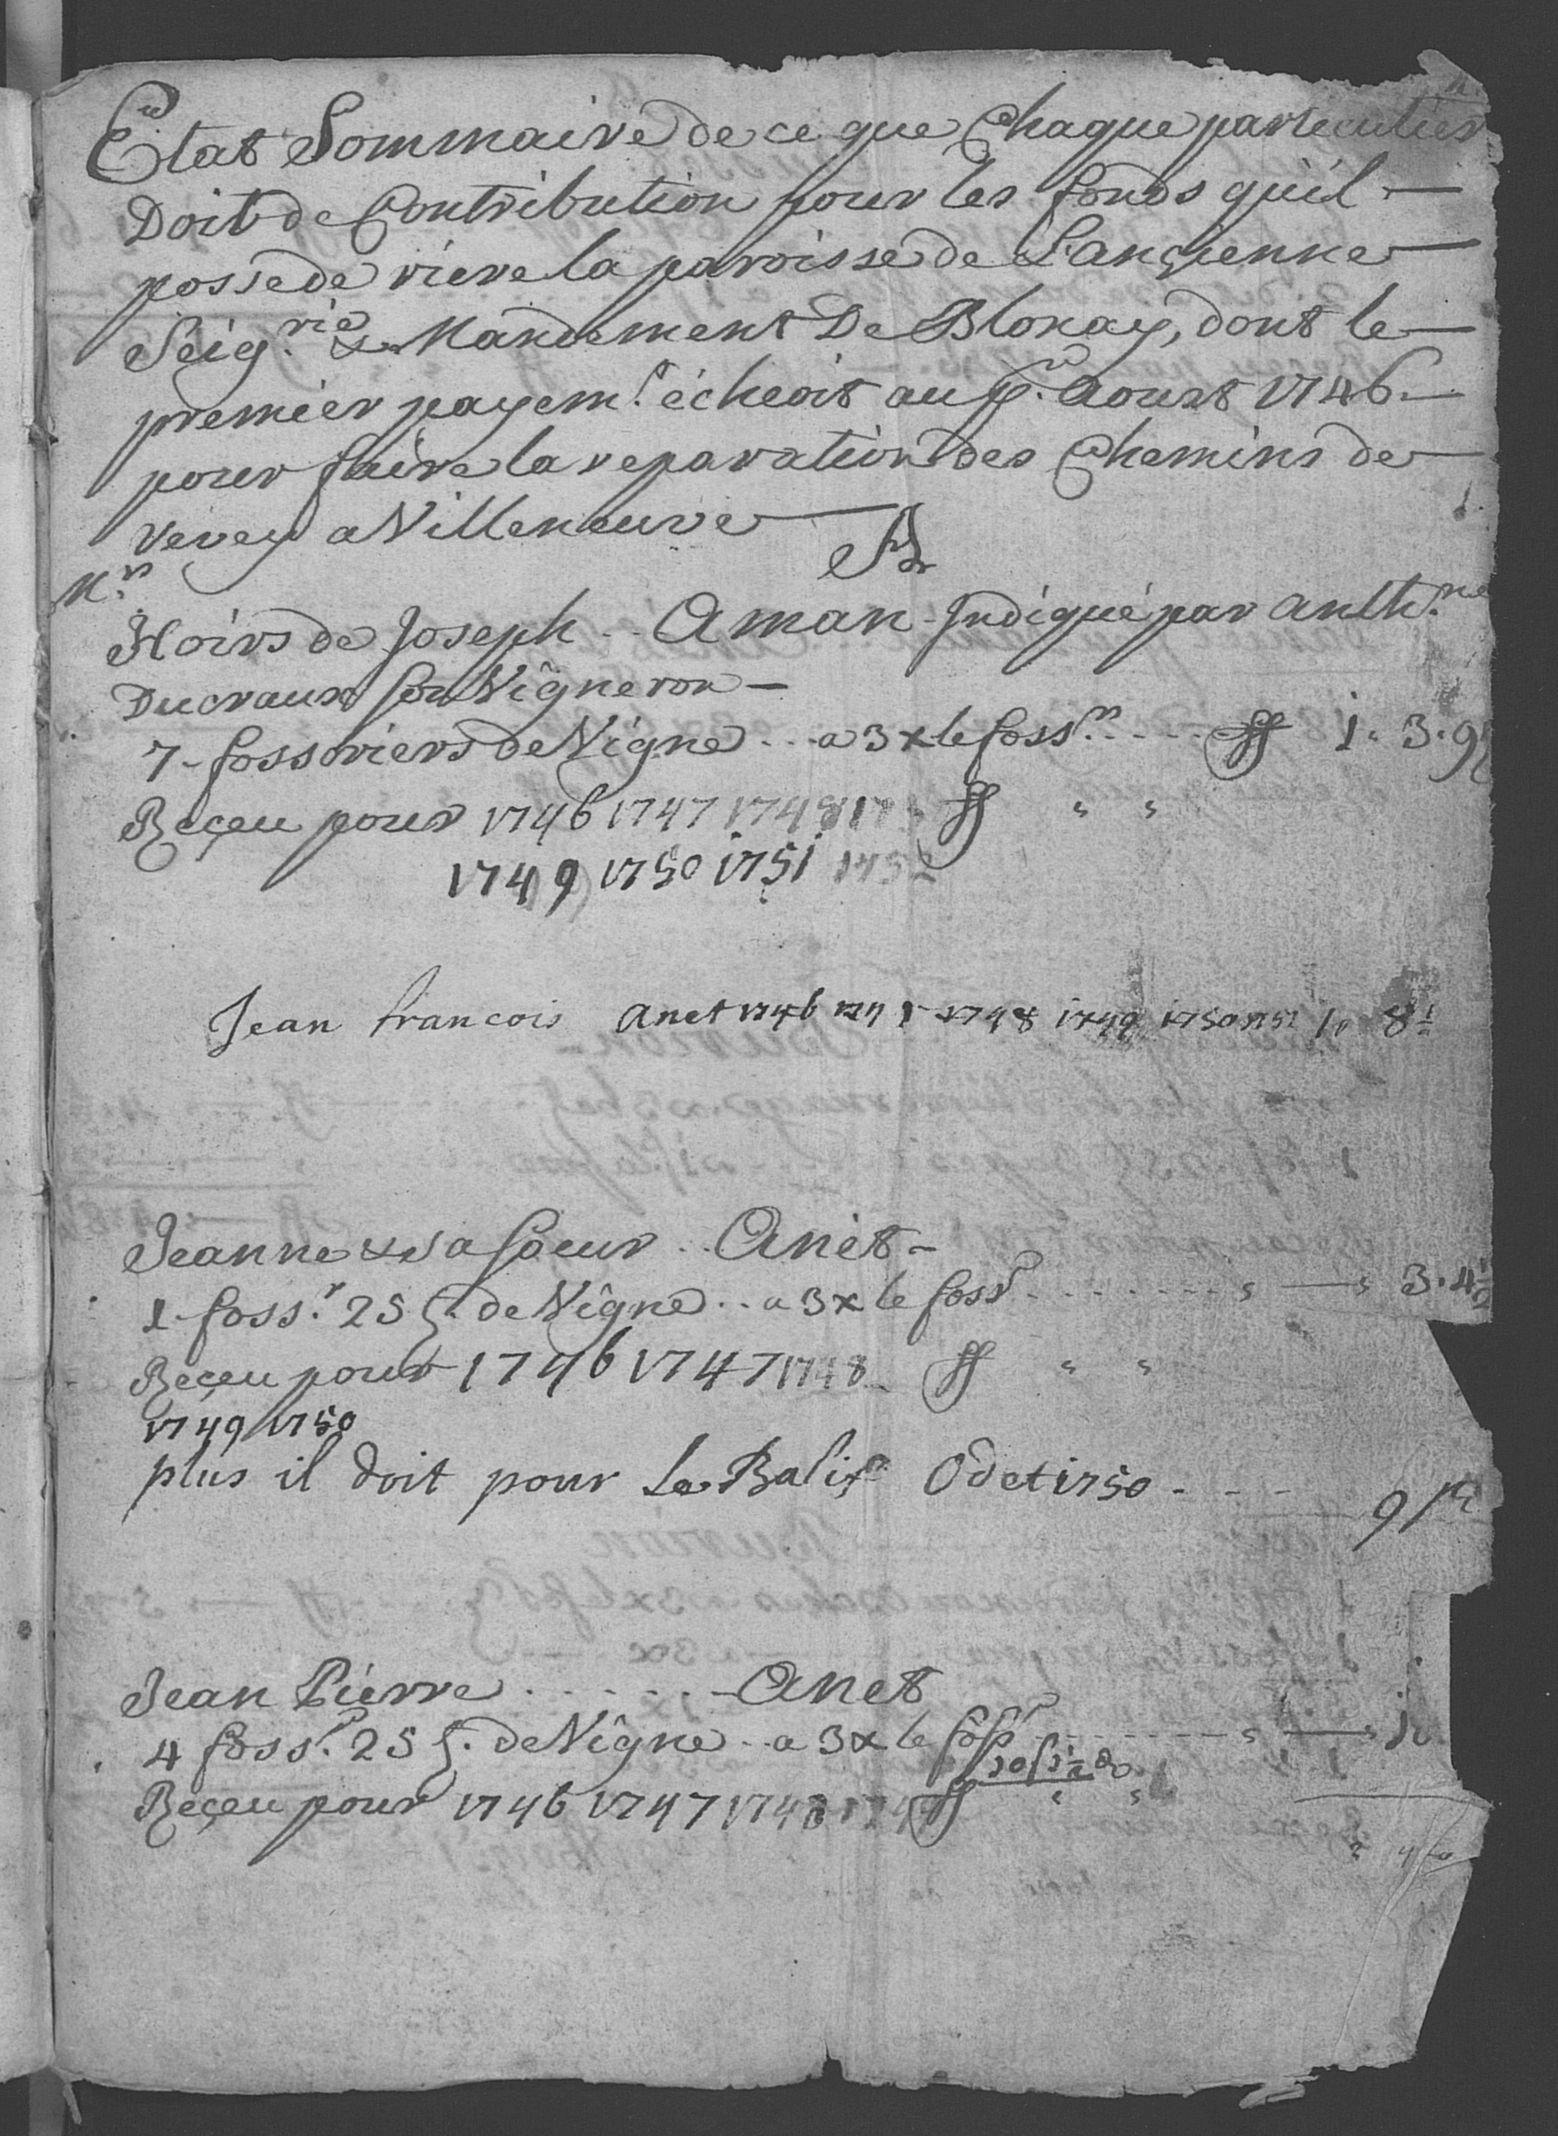 Etat Sommaire de ce que Chaque particulier
Doit de Contribution pour les fonds qu'il
possede riere la paroisse de L'ancienne
Seig.rie & Mandement De Blonay, dont le
premier payem.t écheoit au p.r Aoust 1746.
pour faire la reparation des Chemins de
Vevey a Villeneuve
A
M.rs
Hoirs de Joseph .. Aman Indiqué par Anth.ne
Ducraux son Vigneron
7 fossoriers de Vigne ... a 3 x le foss.r ..... ff 1. 3. 9
Reçeu pour 1746 1747 1748 ff " "
1749 1750 1751 1752
Jean francois Anet 1746 1747 1748 1749 1750 1751 1" 8 1/2
Jeanne & Sa Soeur .. Anet
1 foss.r 25 de Vigne .. a 3 x le foss.r ........ " — " 3. 4 1/2
Reçeu pour 1746 1747 1748 ff " "
1749 1750
plus il doit pour Le Odet 1750 - - - 9
Jean Pierre ....... Anet
4 foss.r 25 de Vigne .. a 3 x le foss.r ........ " — "
Reçeu pour 1746 1747 1748 ff " "